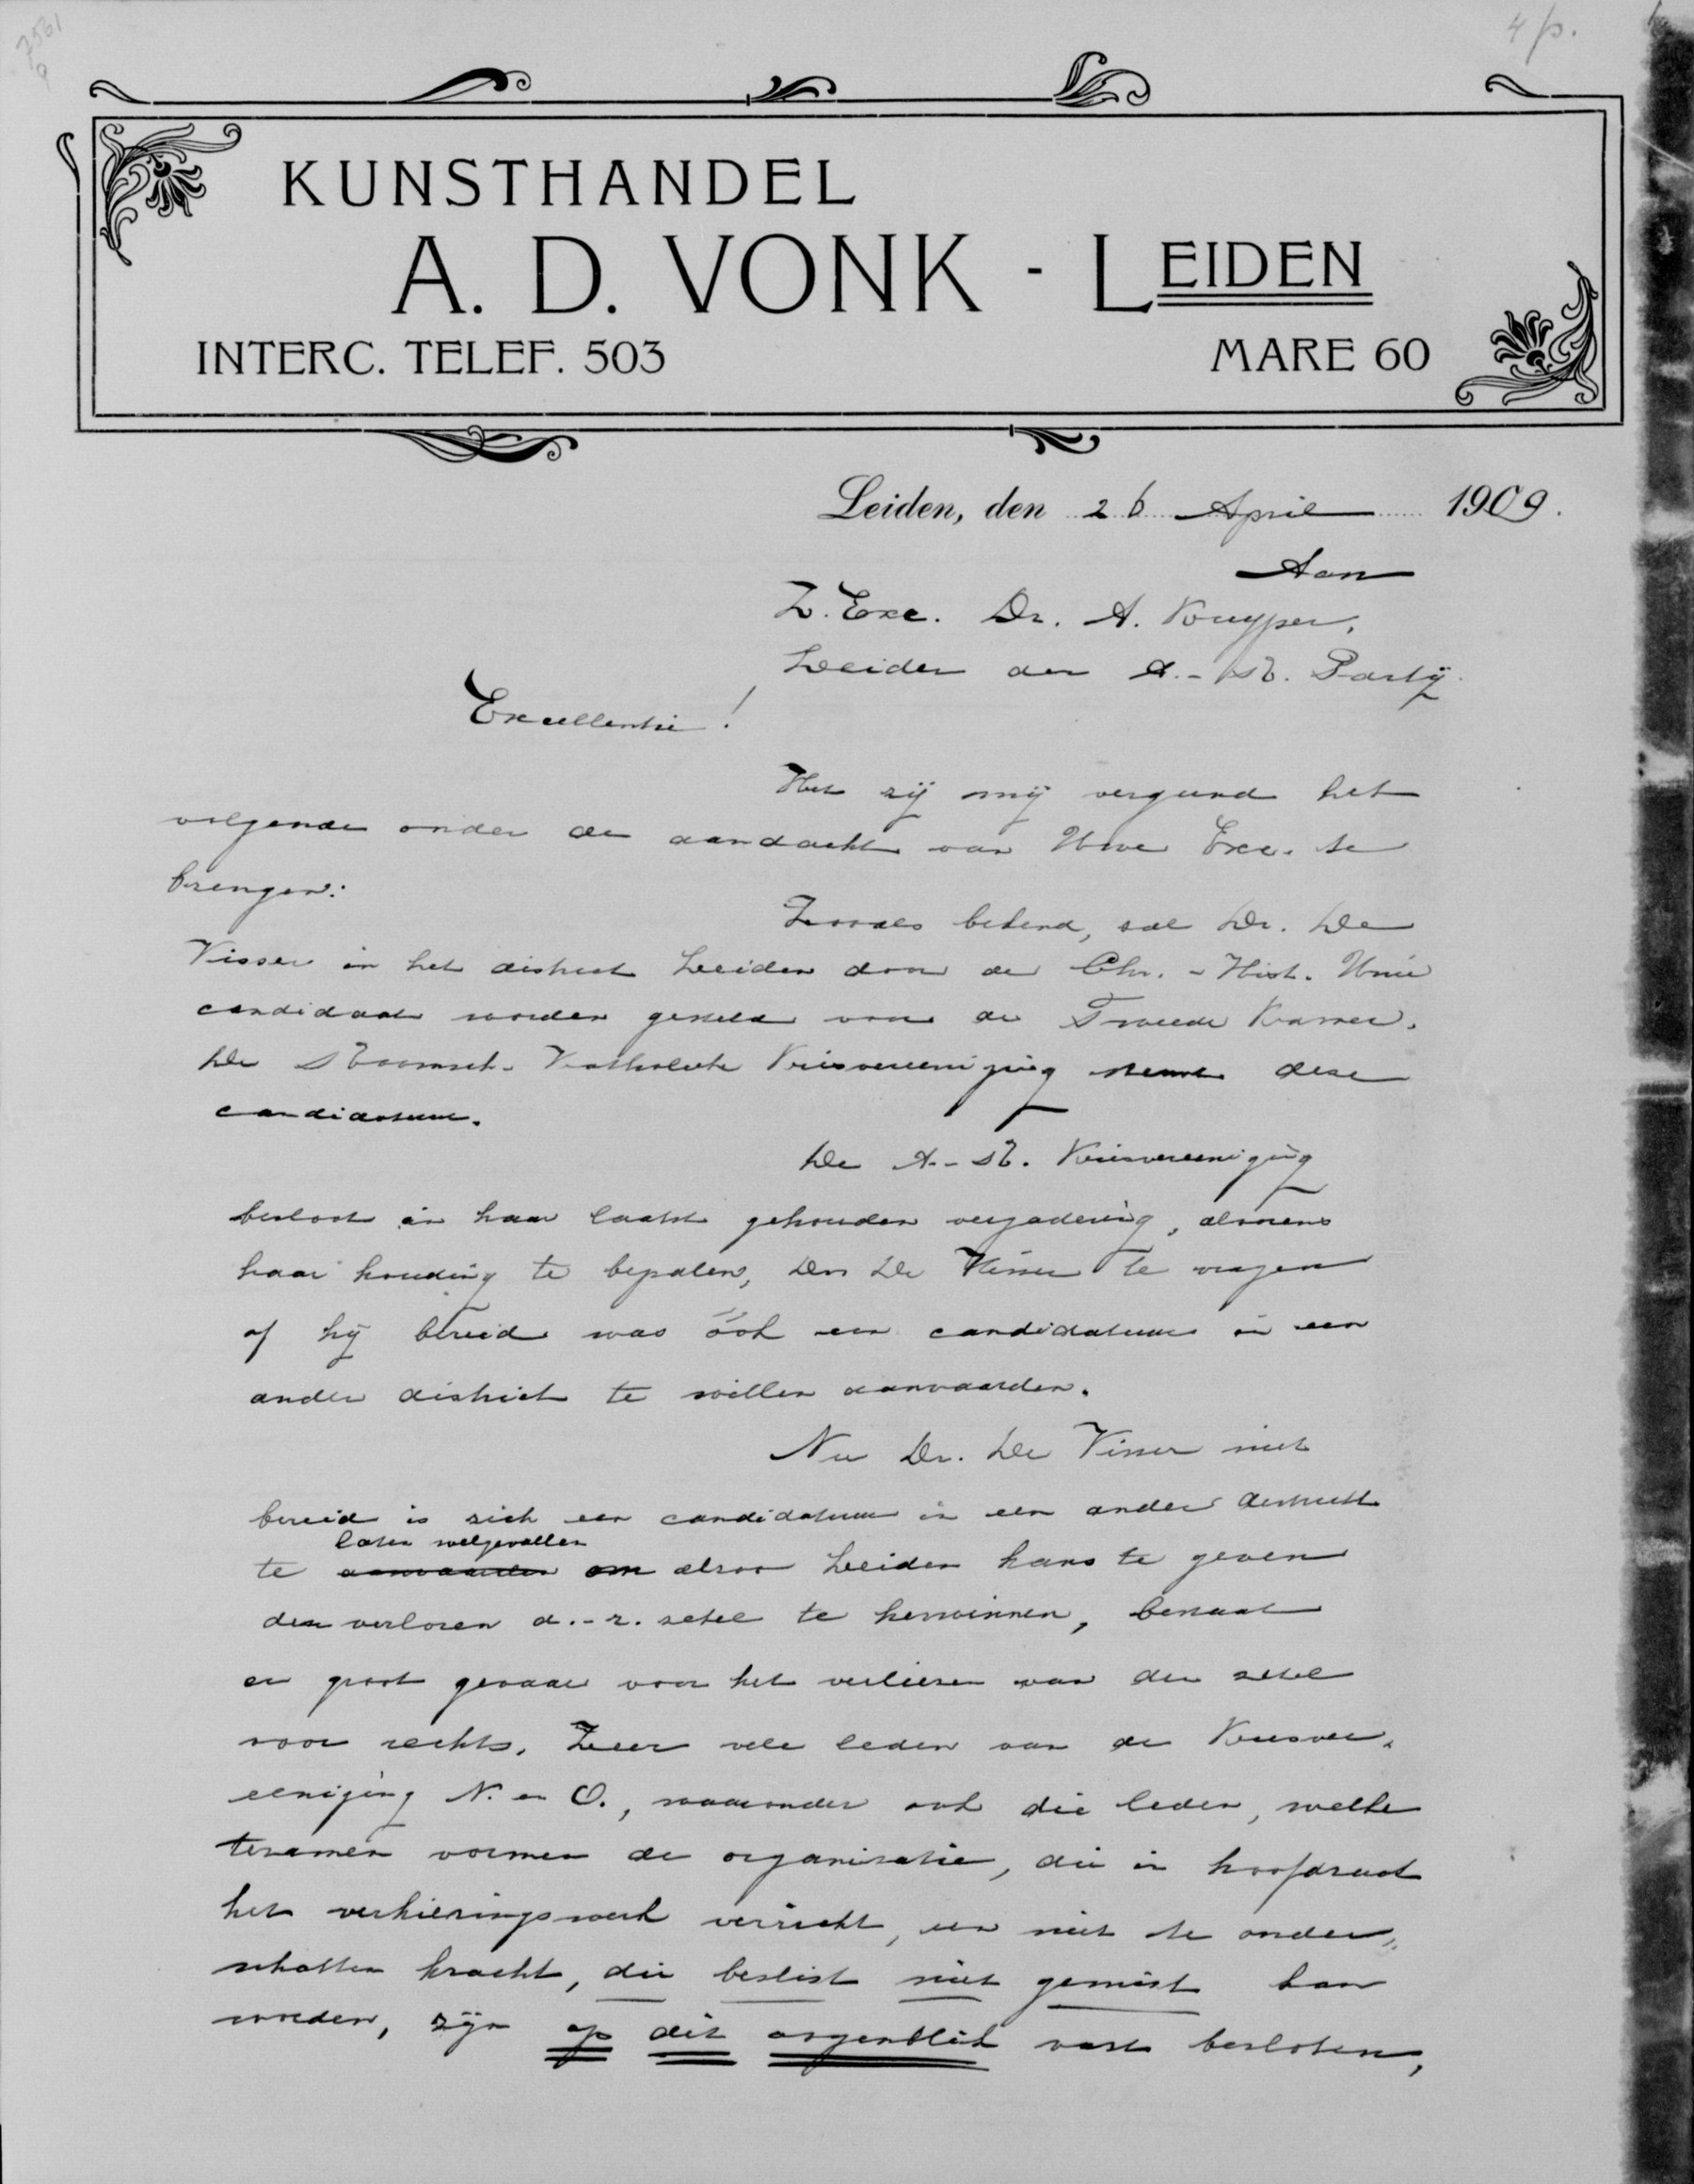 7561
9
4 p.
KUNSTHANDEL
A. D. VONK - LEIDEN
INTERC. TELEF. 503
MARE 60
Leiden, den 26 April 1909.
Aan
Z. Exc. Dr. A. Kuyper,
Leider der A.-R. Partij.
Excellentie!
Het zij mij vergund het
volgende onder de aandacht van Uwe Exc. te
brengen:
Zooals bekend, zal Dr. De
Visser in het district Leiden door de Chr.-Hist. Unie
candidaat worden gesteld voor de Tweede Kamer.
De Roomsch-Katholieke Kiesvereeniging steunt deze
candidatuur.
De A.-R. Kiesvereeniging
besloot in haar laatst gehouden vergadering, alvorens
haar houding te bepalen, Dr. De Visser te vragen
of hij bereid was óók een candidatuur in een
ander district te willen aanvaarden.
Nu Dr. De Visser niet
bereid is zich een candidatuur in een ander district
laten welgevallen
te aanvaarden om alzoo Leiden kans te geven
den verloren a.-r. zetel te herwinnen, bestaat
er groot gevaar voor het verliezen van den zetel
voor rechts. Zeer vele leden van de Kiesver-
eeniging N. en O., waaronder ook die leden, welke
tezamen vormen de organisatie, die in hoofdzaak
het verkiezingswerk verricht, een niet te onder-
schatten kracht, die beslist niet gemist kan
worden, zijn op dit oogenblik vast besloten,